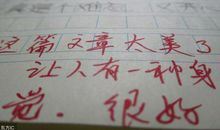 这篇文章太美了
让人有一种身
觉. 很好
东方IC